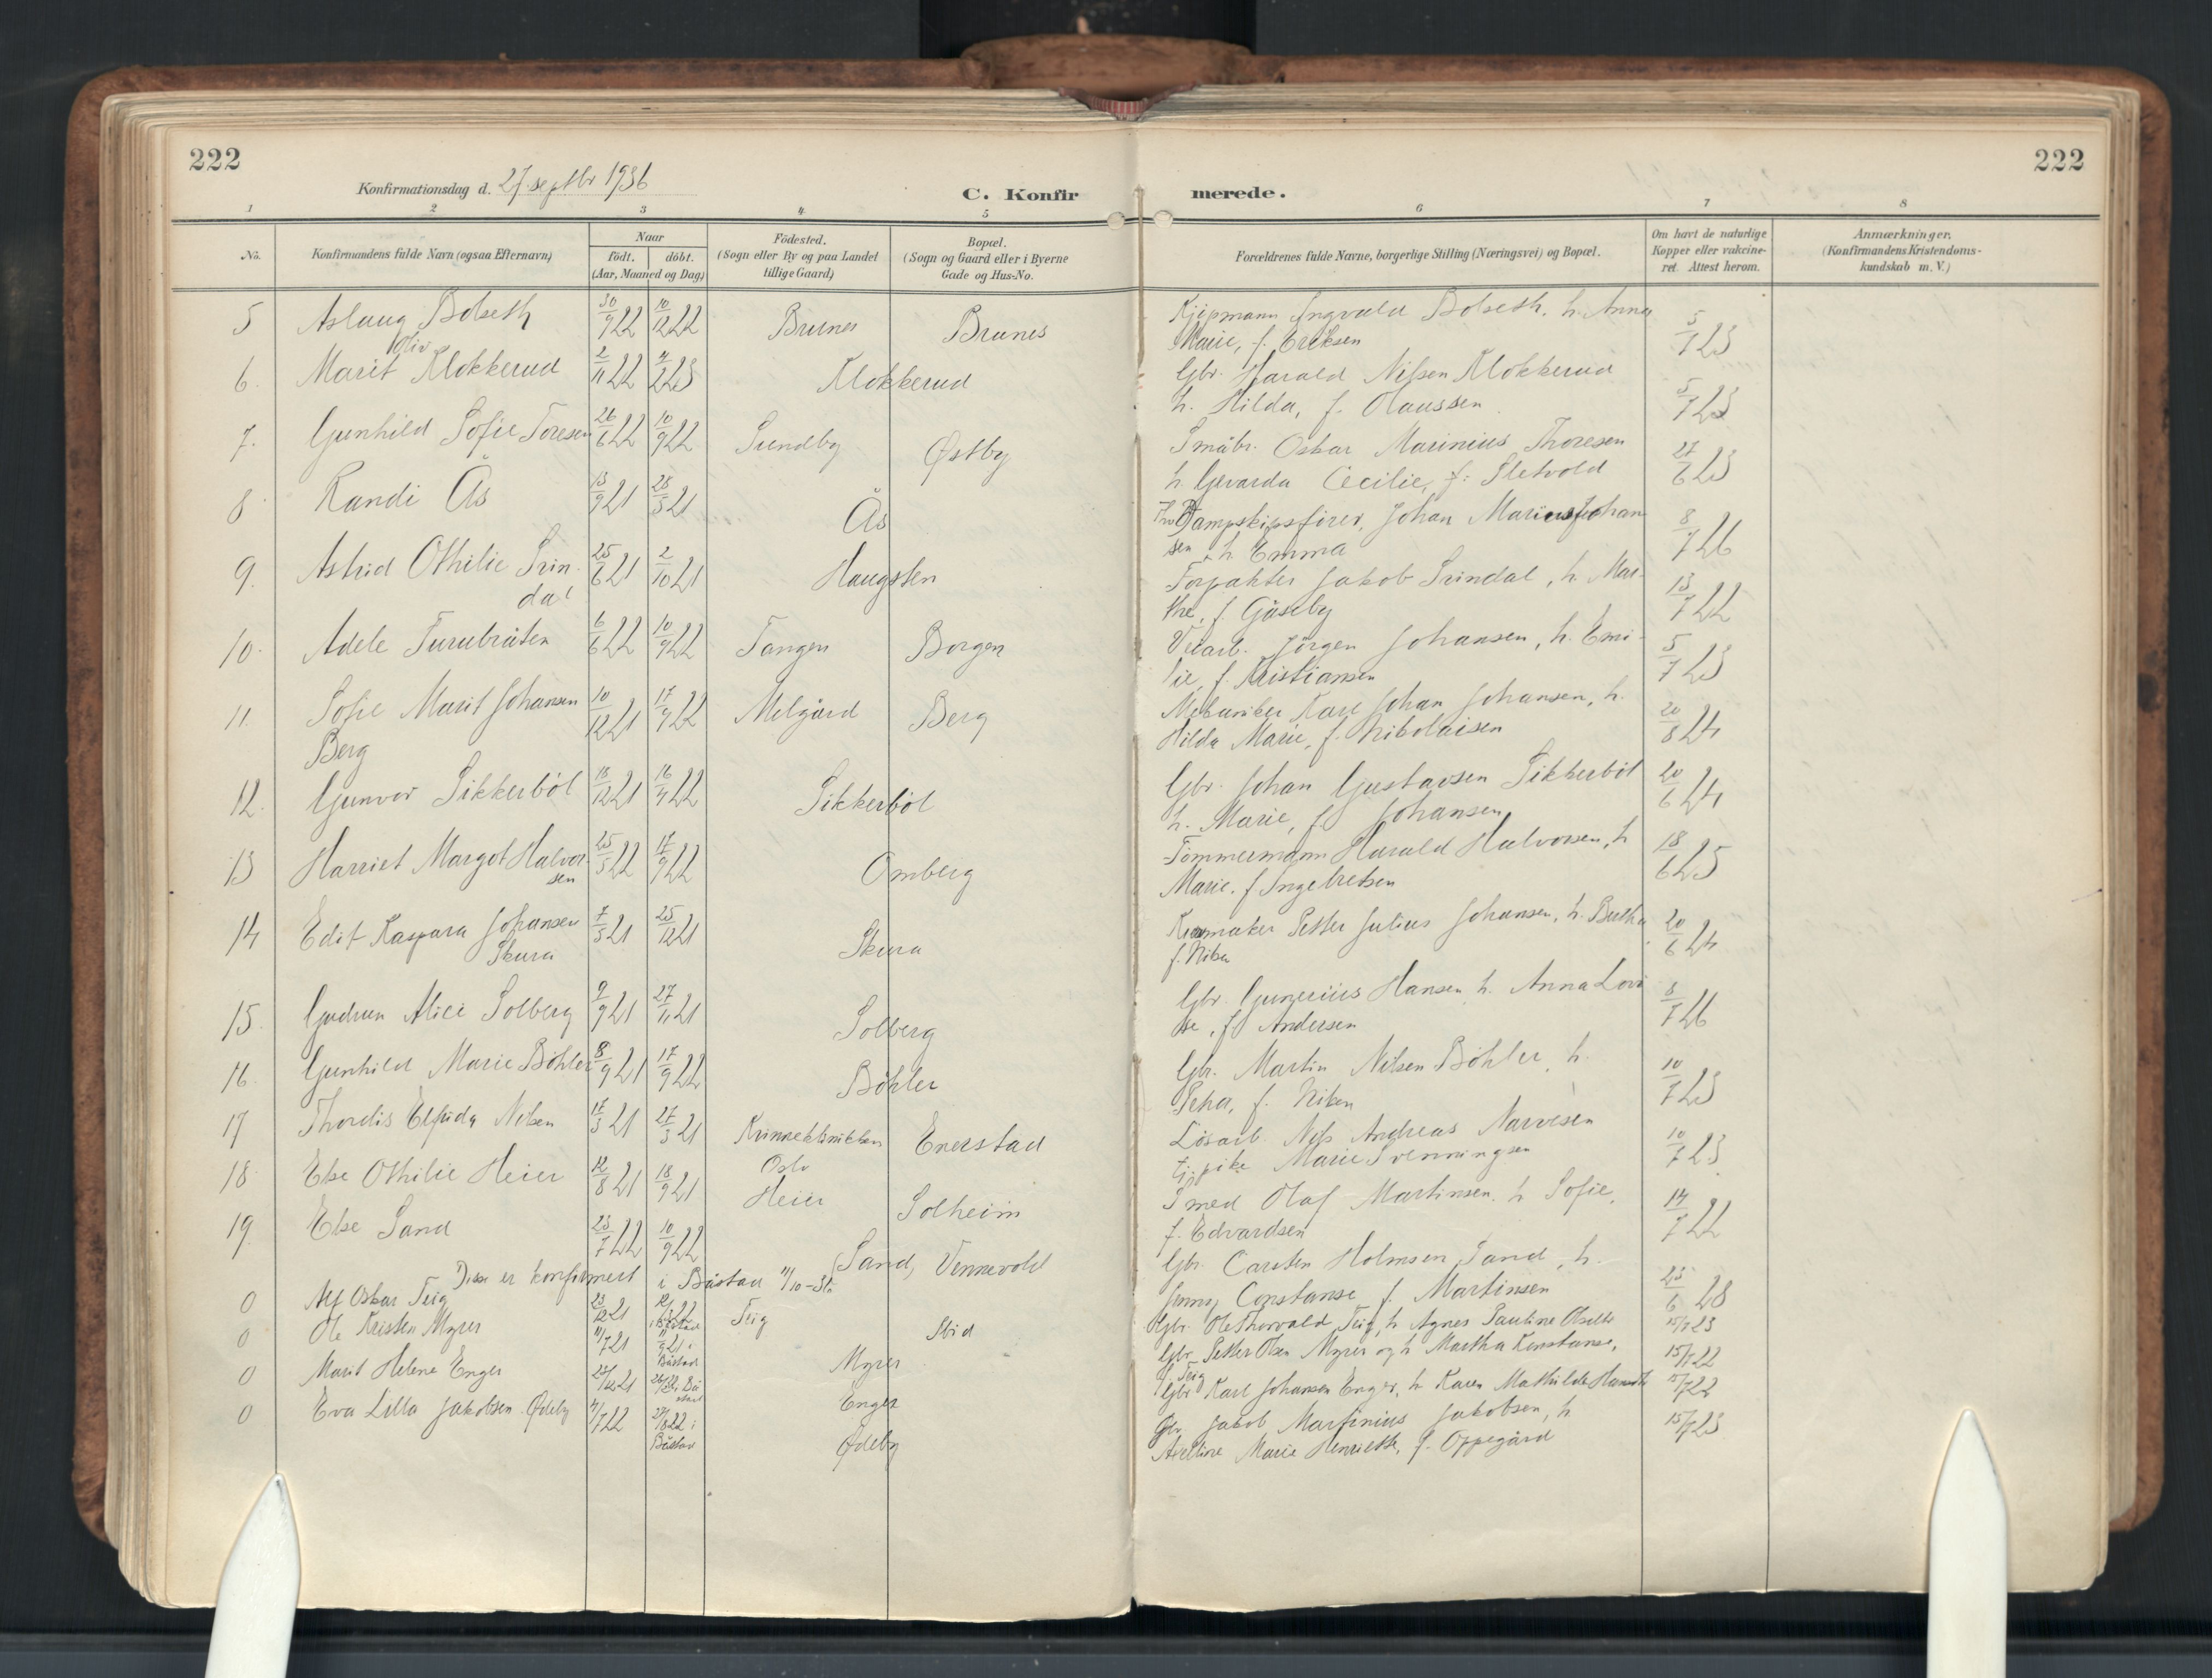 222
222
Konfirmationsdag d. 27. septbr 1936
C. Konfirmerede.
1 2 3 4 5 6 7 8
No.
Konfirmandens fulde Navn (ogsaa Efternavn)
Naar
Födt. döbt.
(Aar, Maaned og Dag)
Födested.
(Sogn eller By og paa Landet
tillige Gaard)
Bopæl.
(Sogn og Gaard eller i Byerne
Gade og Hus-No.
Forældrenes fulde Navne, borgerlige Stilling (Næringsvei) og Bopæl.
Om havt de naturlige
Kopper eller vakcine-
ret. Attest herom.
Anmærkninger.
(Konfirmandens Kristendoms-
kundskab m. V.)
5 Aslaug Bolseth 30/9 22 10/12 22 Brunes Brunes Kjøpmann Ingvald Bolseth, h. Anna
Marie, f. Eriksen 5/7 23
6. Marit Oliv Klokkerud 2/11 22 4/2 23 Klokkerud Gbr. Harald Nilsen Klokkerud
h. Hilda, f. Olaussen 5/7 23
7. Gunhild Sofie Toresen 26/6 22 10/9 22 Sundby Østby Småbr. Oskar Marinius Thoresen
h. Gevarda Cecilie, f. Sletvold 27/6 23
8 Randi Ås 13/9 21 28/5 21 Ås Dampskipsfører, Johan Marius Johan
sen, h. Emma 8/7 26
9. Astrid Othilie Srin-
dal 25/6 21 2/10 21 Haugsten Forpakter Jakob Srindal, h. Mar-
the, f. Gåseby 13/7 22
10. Adele Furubråten 6/6 22 10/9 22 Tangen Borgen Veiarb. Jörgen Johansen, h. Emi-
lie, f. Kristiansen 5/7 23
11. Sofie Marit Johansen
Berg 10/12 21 17/9 22 Melgård Berg Mekaniker Karl Johan Johansen, h.
Hilda Marie, f. Nikolaisen 20/8 24
12. Gunvor Sikkerböl 18/12 21 16/4 22 Sikkerböl Gbr. Johan Gustavsen Sikkerböl
h. Marie, f. Johansen 20/6 24
13 Harriet Margot Halvor-
sen 25/5 22 17/9 22 Omberg Tömmermann Harald Halvorsen, h
Marie, f. Ingebretsen 18/6 25
14 Edit Kaspara Johansen
Skura 7/5 21 25/12 21 Skura Petter Julius Johansen, h. Bertha
20/6 24
15. Gudrun Alice Solberg 9/9 21 27/11 21 Solberg Gbr. Gunerius Hansen h. Anna Lovi
se, f. Andersen 8/7 26
16. Gunhild Marie Böhler 8/9 21 17/9 22 Böhler Gbr. Martin Nilsen Böhler, h.
10/7 23
17 Thordis Elfrida Nilsen 17/3 21 27/3 21 Kvinneklinikken
Oslo Enerstad Lösarb. Nils Andreas Narvesen
tj. pike Marie Svenningsen 10/7 23
18. Else Othilie Heier 12/8 21 18/9 21 Heier Solheim Smed Olaf Martinsen, h Sofie,
f. Edvardsen 14/7 22
19. Else Sand 23/7 22 10/9 22 Sand, Vennevold Gbr. Carsten Holmsen Sand, h.
Jenny Constanse f. Martinsen 23/6 28
Disse er konfirmert i Båstad 11/10-36
0 Alf Oskar Teig 23/12 21 i Båstad Teig Stid Gbr. Ole Thorvald Teig, h Agnes Pauline 15/7 23
0 Ole Kristen Myrer 11/7 21 i Båstad Myrer Gbr. Petter Olsen Myrer og h Martha Konstanse,
f. Teig 15/7 22
0 Marit Helene Enger Båstad Enger Gbr. Karl Johansen Enger, h Karen Mathilde 15/7 22
0 Eva Lilla Jakobsen Ødeby 4/7 22 27/8 22 i
Båstad Ødeby Gbr. Jakob Martinius Jakobsen, h
Aveline Marie Henriette, f. Oppegård 15/7 23